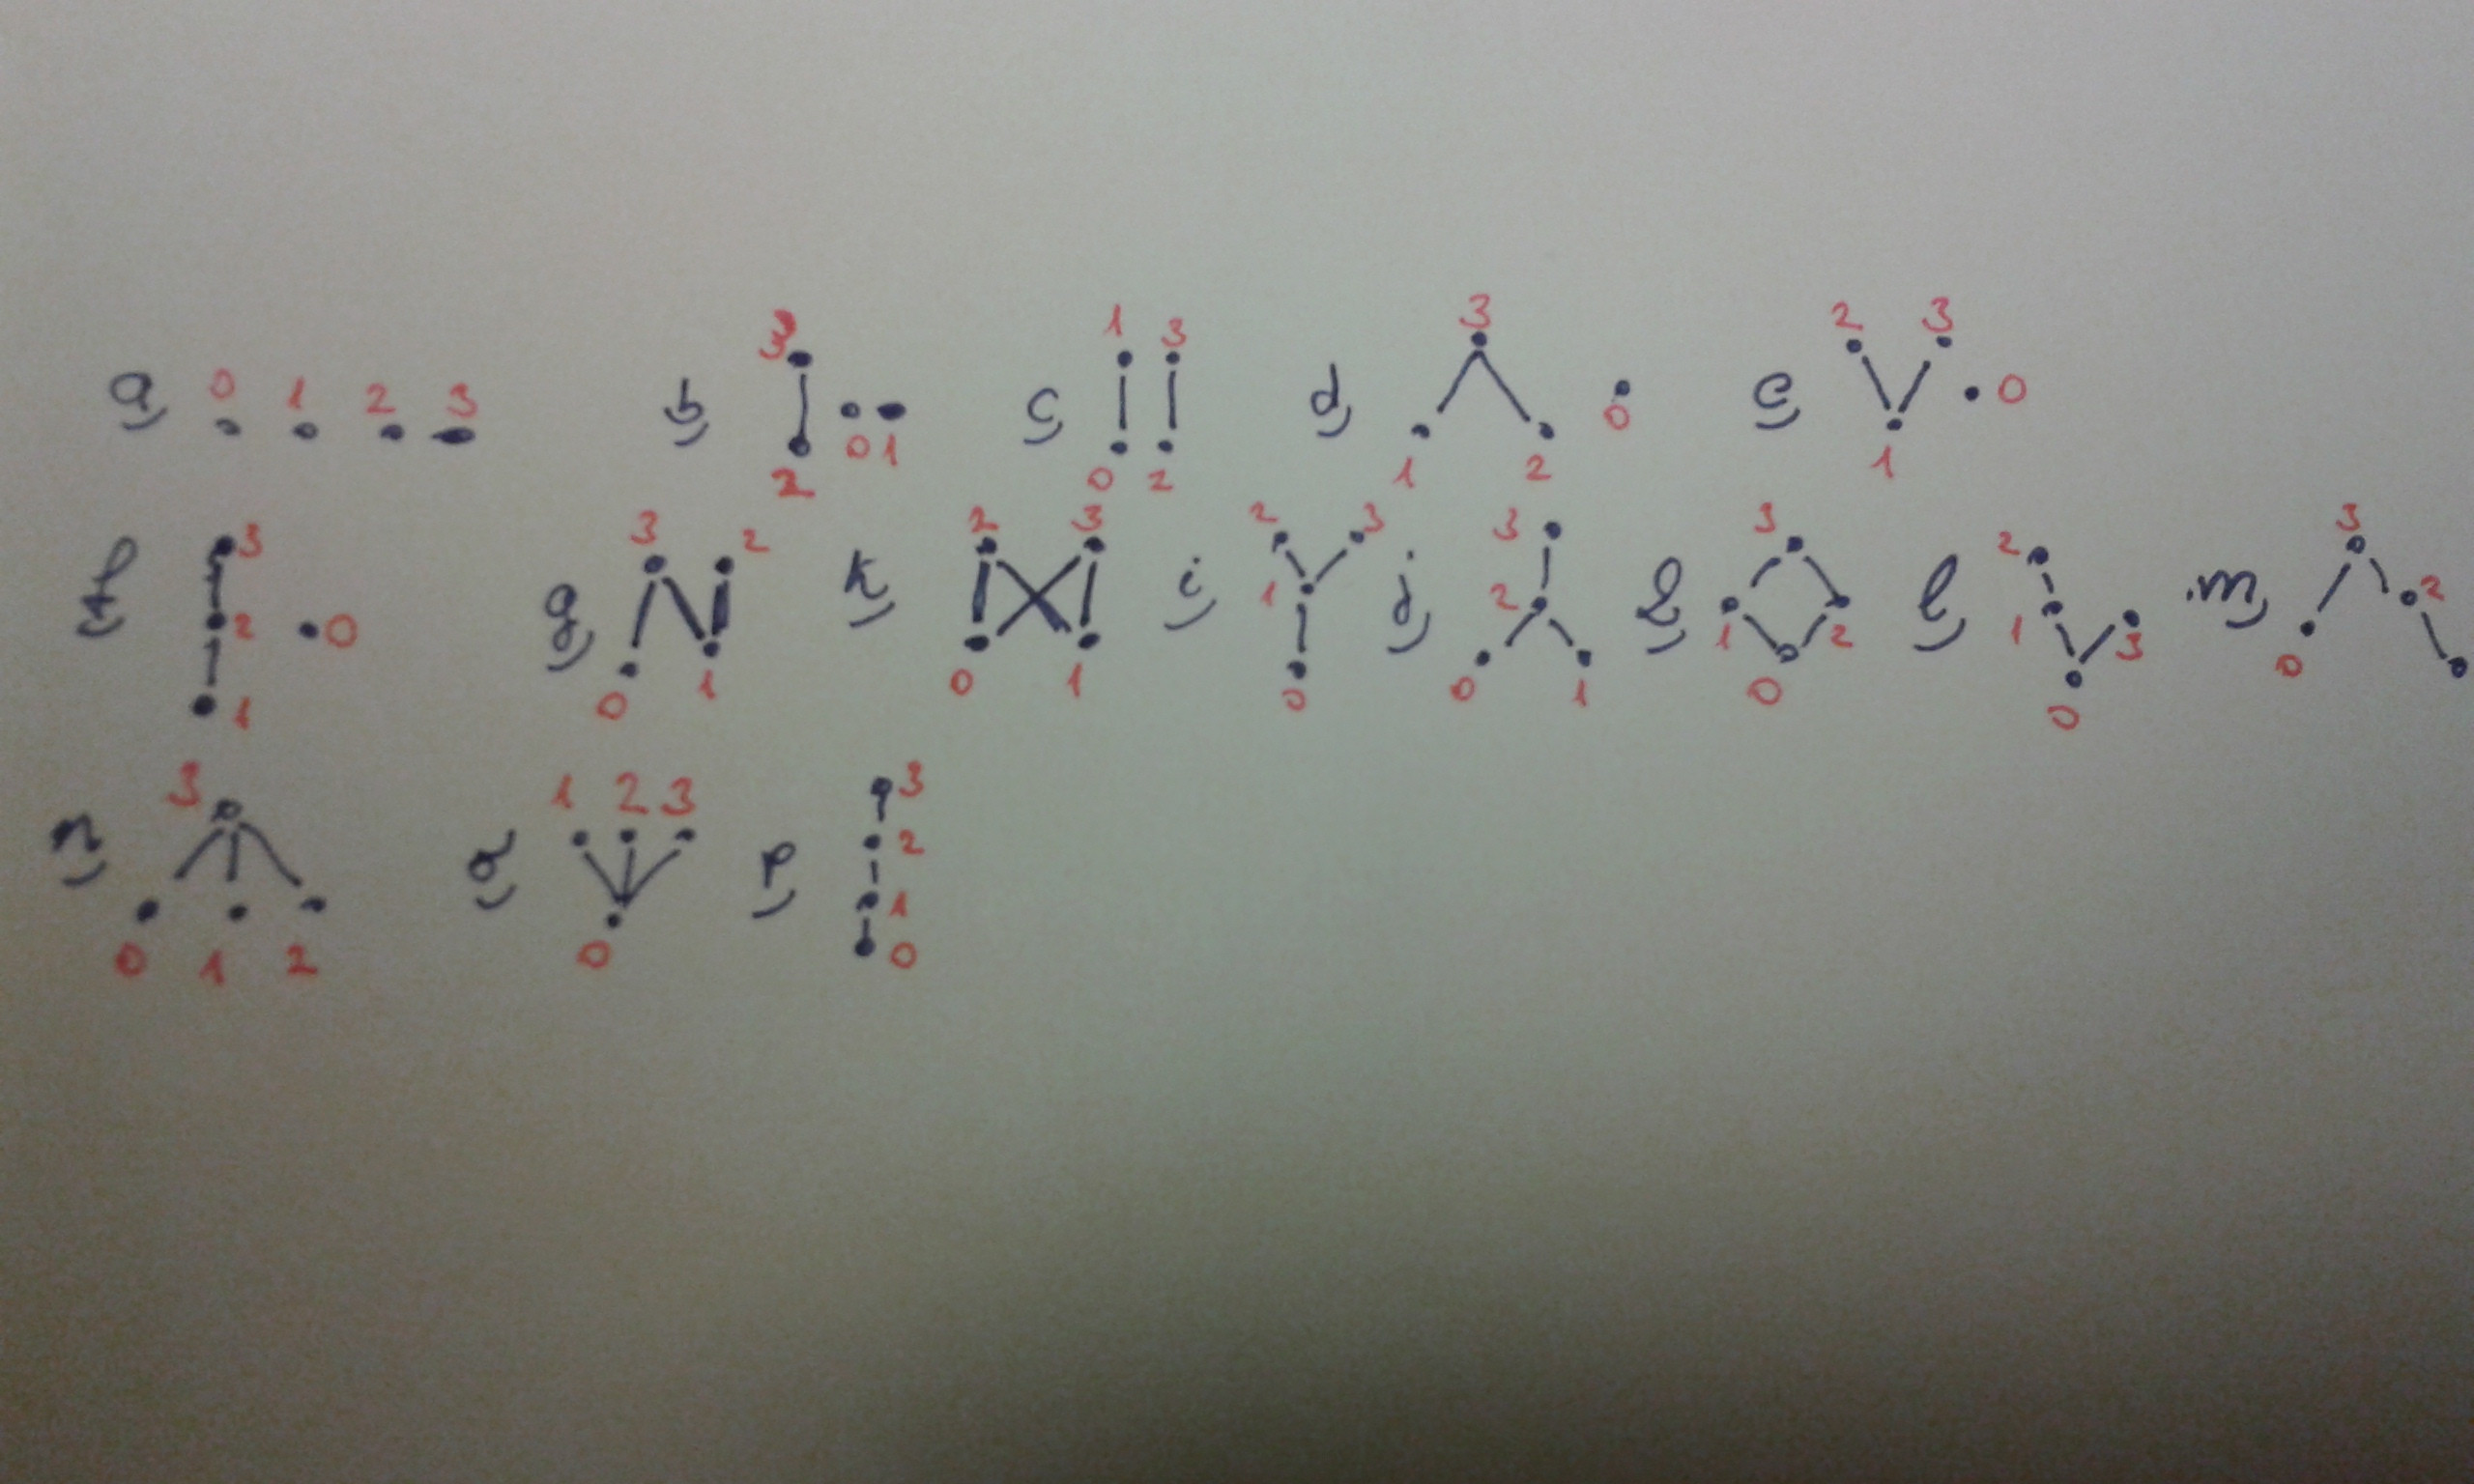 a 0 1 2 3 b 3 2 0 1 c 1 3 0 2 d 3 1 2 0 e 2 3 1 0
f 3 2 1 0 g 3 2 0 1 k 2 3 0 1 i 2 3 1 0 j 3 2 0 1 3 1 2 0 l 2 1 3 0 m 3 2 0
n 3 0 1 2 o 1 2 3 0 p 3 2 1 0